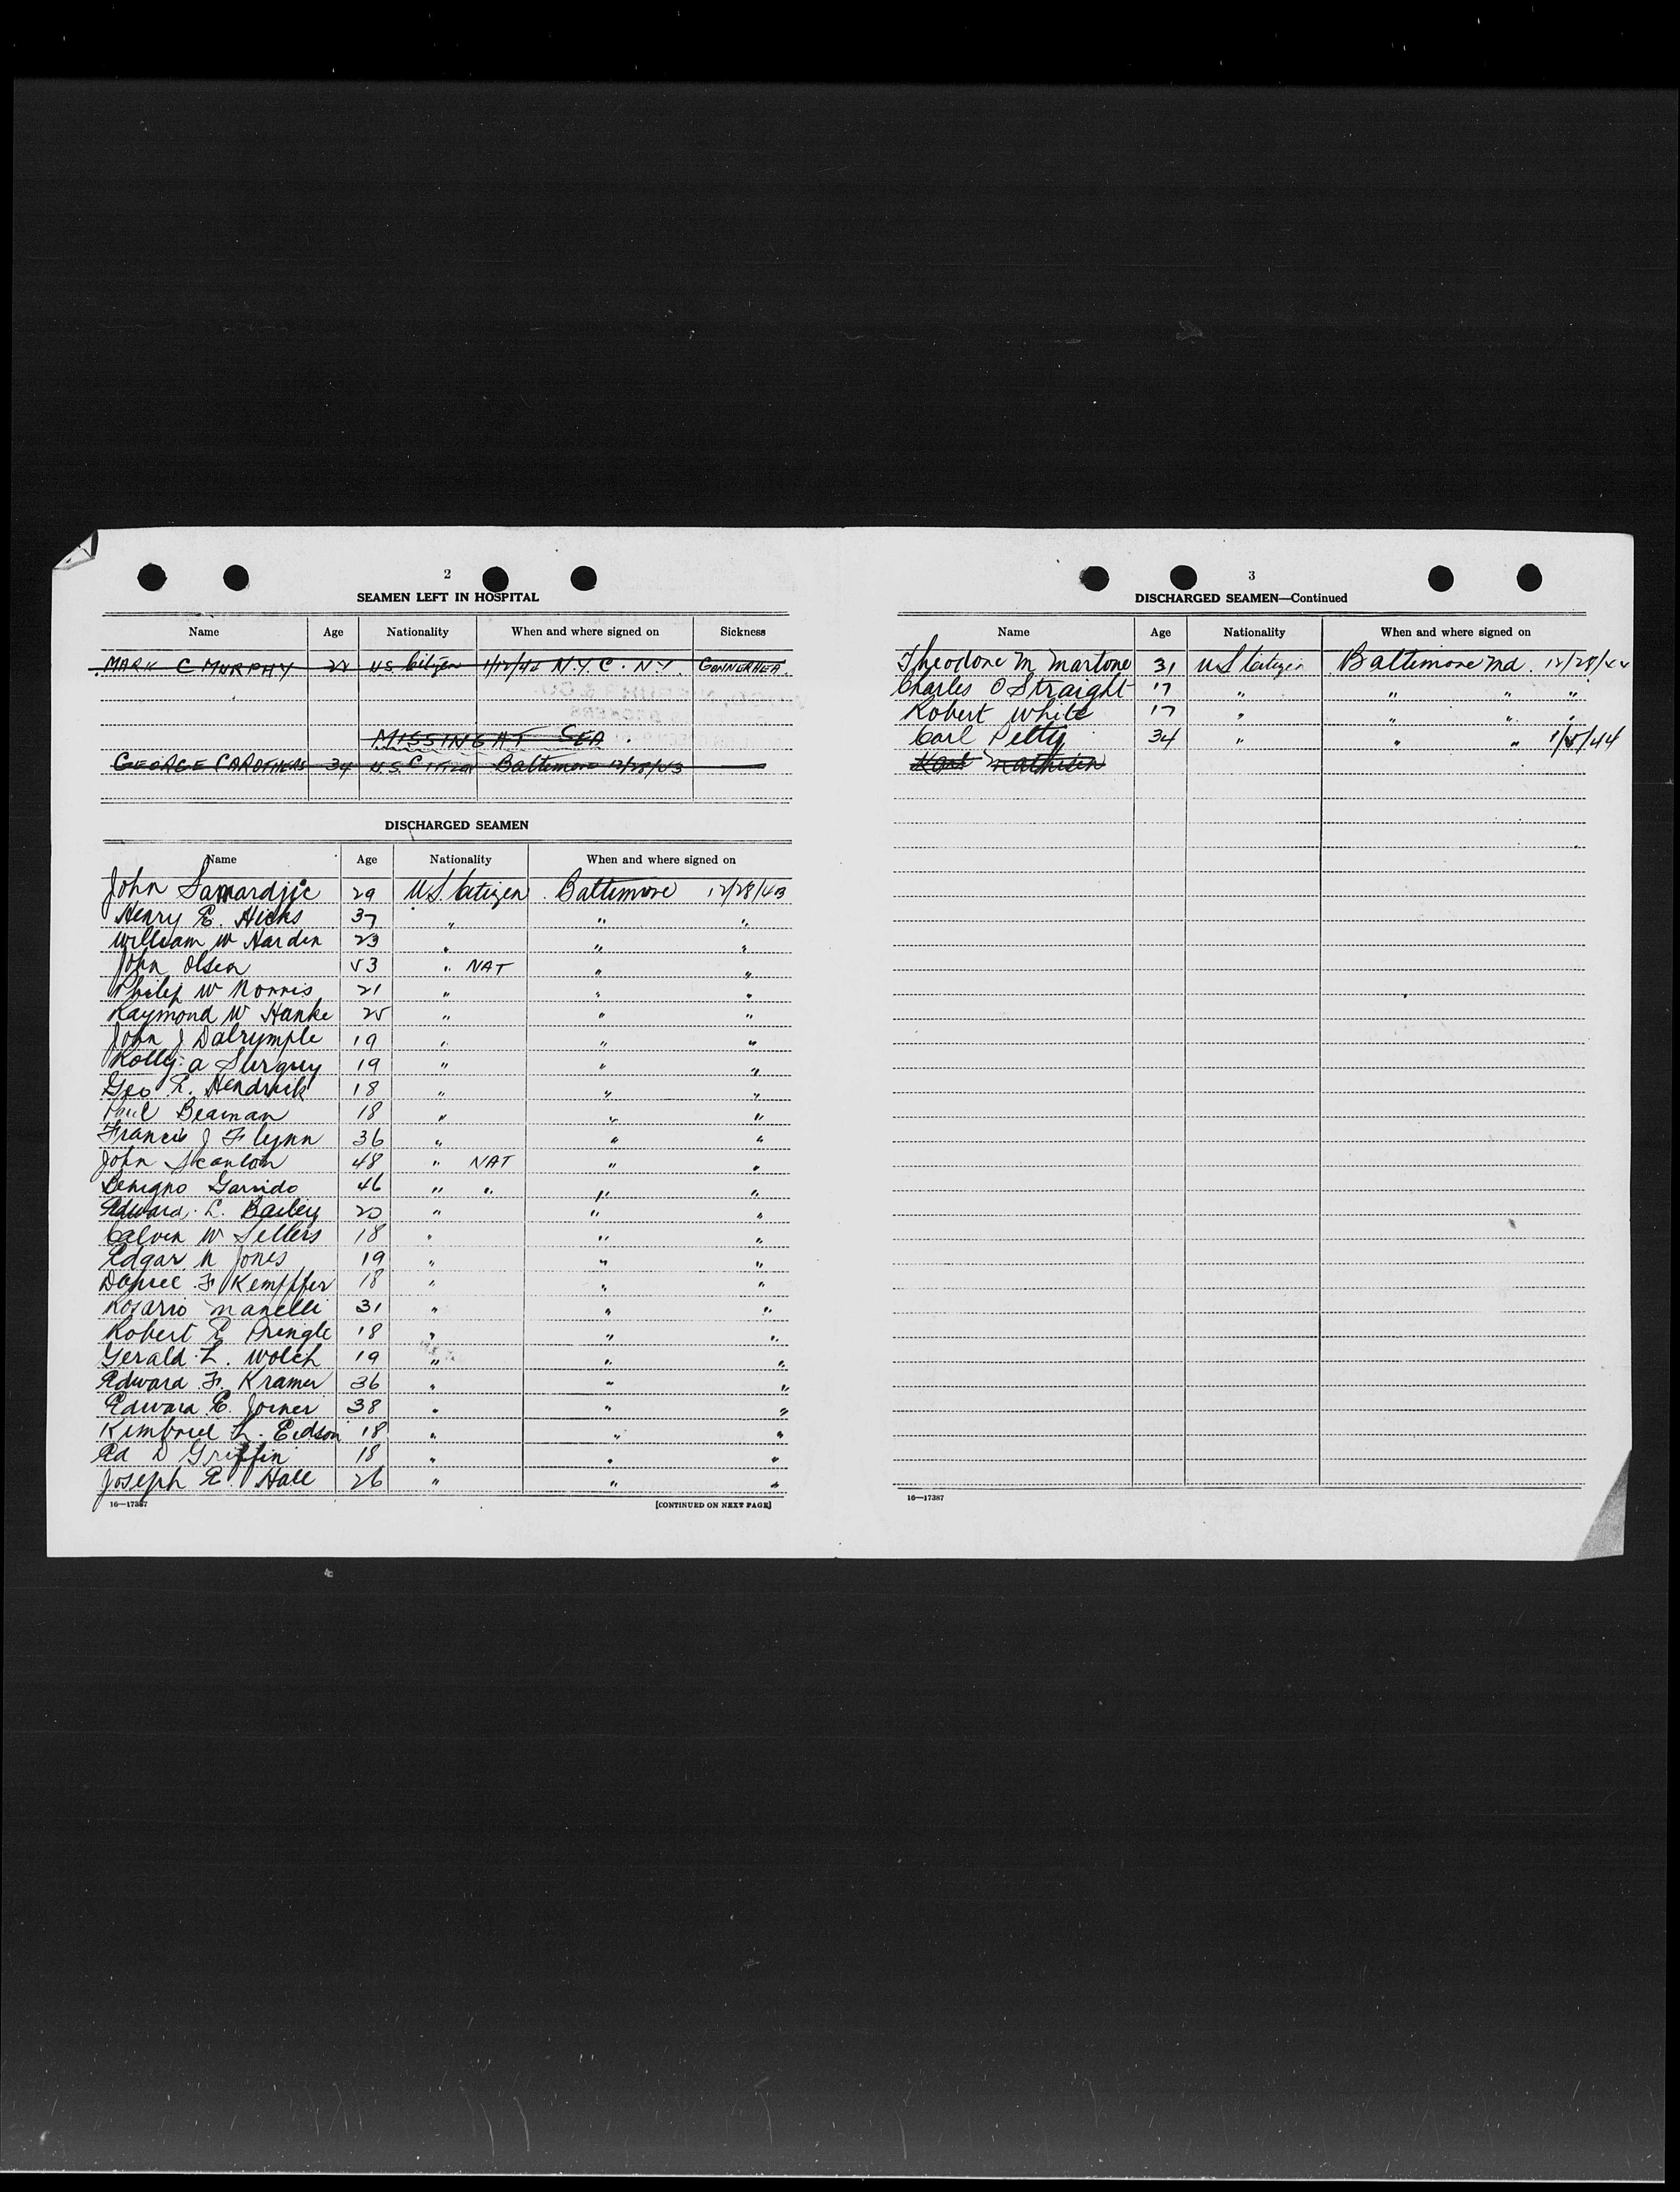 2
SEAMEN LEFT IN HOSPITAL
Name Age Nationality When and where signed on Sickness
MARK C MURPHY U.S. Citizen 1/12/44 N.Y.C. N.Y. GONNERHEA.
MISSING AT SEA.
GEORGE CAROTHERS 34 U.S. Citizen Baltimore 12/28/43
DISCHARGED SEAMEN
Name Age Nationality When and where signed on
John Samardjic 29 U.S. Citizen Baltimore 12/28/43
Henry E. Hicks 37 " " "
William W Harden 23 " " "
John Olsen 53 " NAT " "
Philip W Norris 21 " " "
Raymond W Hanke 25 " " "
John J Dalrymple 19 " " "
A 19 " " "
Geo R. Hendrick 18 " " "
Paul Beaman 18 " " "
Francis J Flynn 36 " " "
John Scanlon 48 " NAT " "
Benigno Garrido 46 " " " "
Edward L. Bailey 20 " " "
Calvin W Sellers 18 " " "
Edgar N Jones 19 " " "
Daniel F Kempffer 18 " " "
Rosario Manelli 31 " " "
Robert E Pringle 18 " " "
Gerald L. Wolch 19 " " "
Edward F. Kramer 36 " " "
Edward E. Joiner 38 " " "
L. Eidson 18 " " "
Ed D Griffin 18 " " "
Joseph E. Hall 26 " " "
16—17387 [CONTINUED ON NEXT PAGE]
3
DISCHARGED SEAMEN—Continued
Name Age Nationality When and where signed on
Theodore M Martone 31 U.S Citizen Baltimore Md. 12/28/43
Charles O Straight 17 " " " "
Robert White 17 " " " "
Carl Petty 34 " " " 1/5/44
Karl Mathisen
16—17387